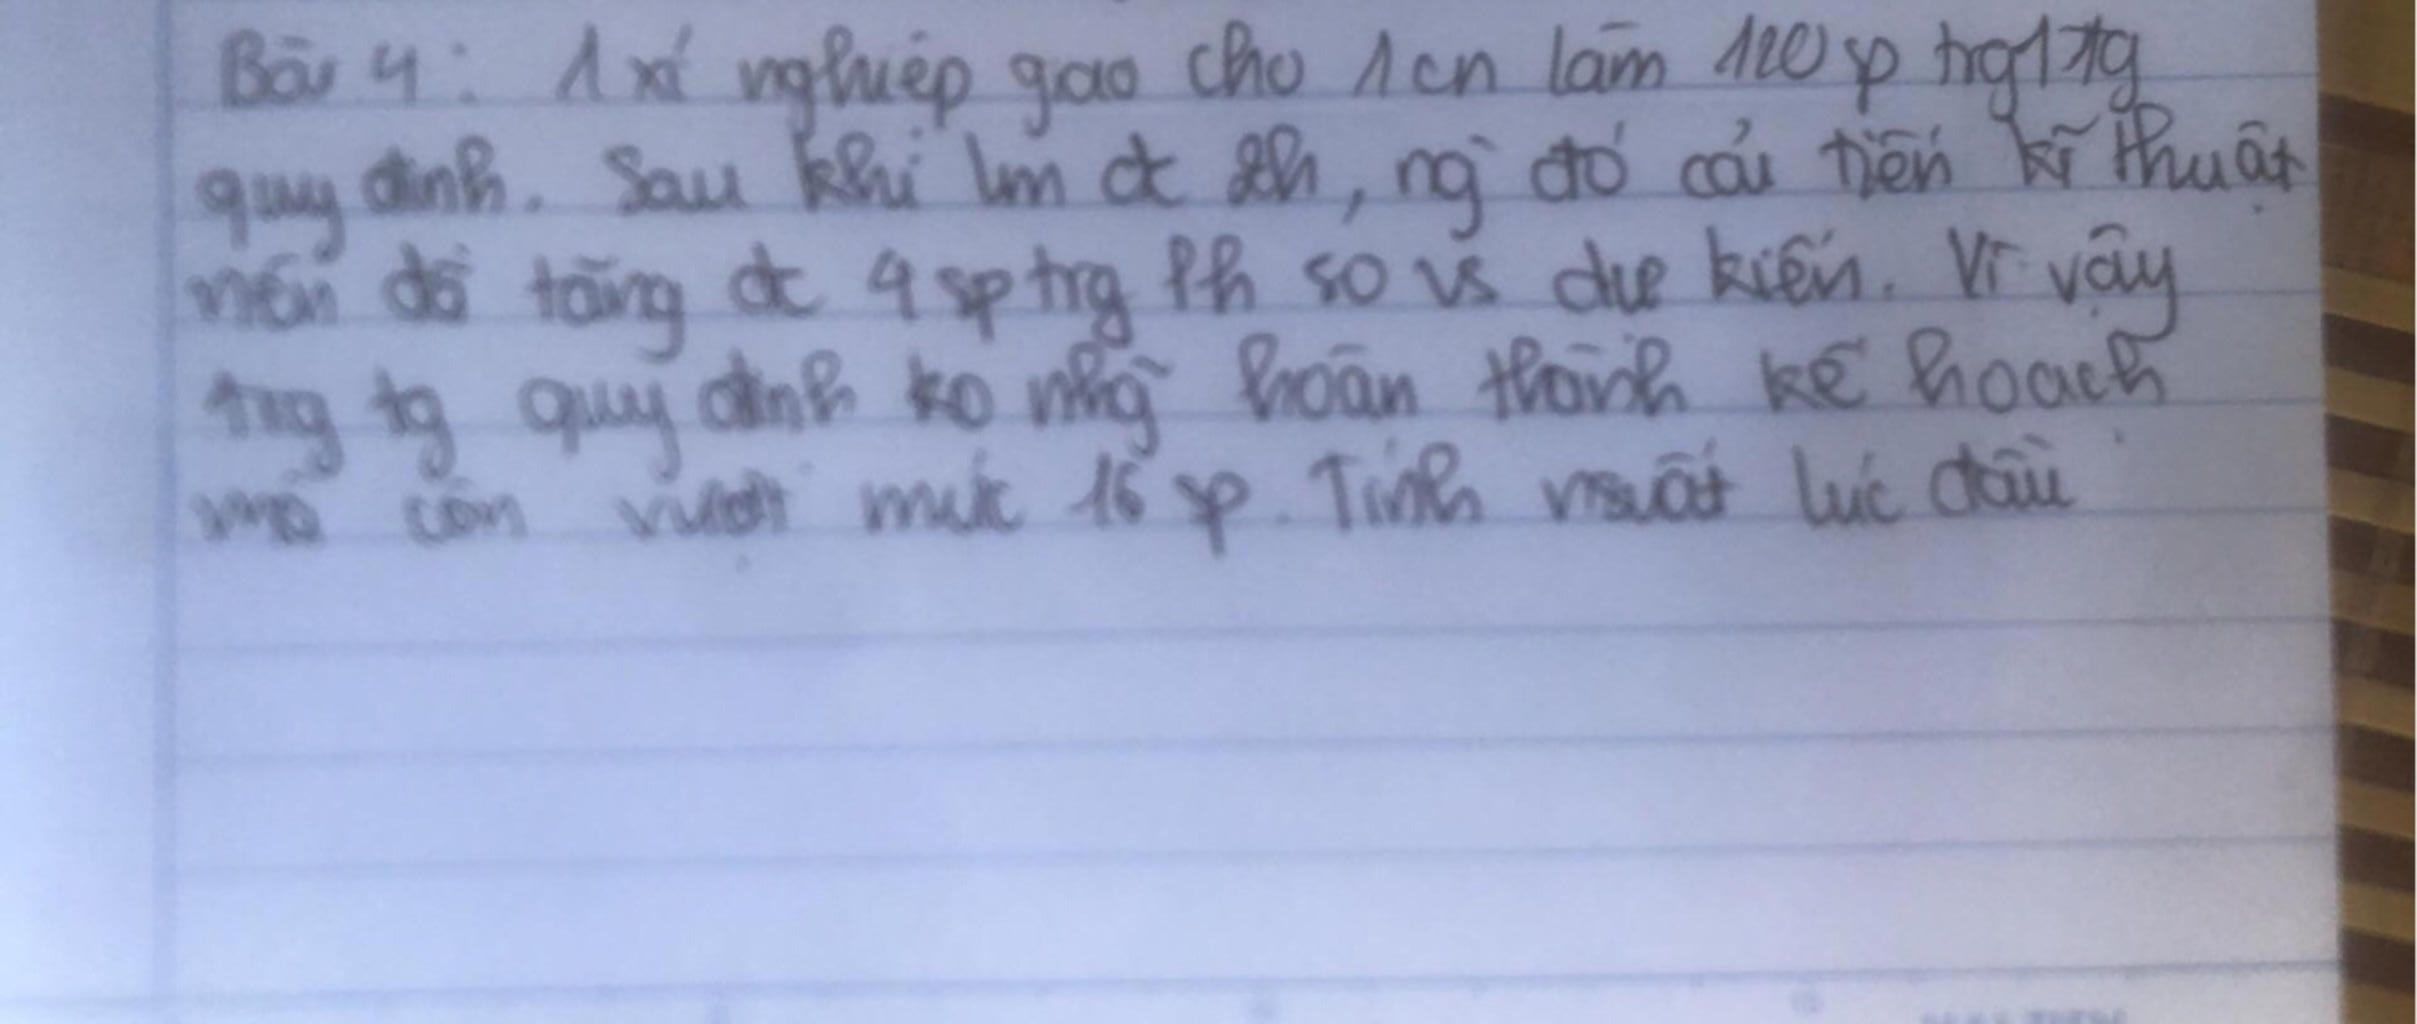 Bài 4: 1 xí nghiệp giao cho 1 cn làm 120 sp trg 1 tg
quy định. Sau khi lm đc 2h, ng đó cải tiến kĩ thuật
nên đó tăng đc 4 sp trg 1h so vs dự kiến. Vì vậy
trg tg quy định ko nhg hoàn thành kế hoạch
mà còn vượt mức 16 sp. Tính nsuất lúc đầu